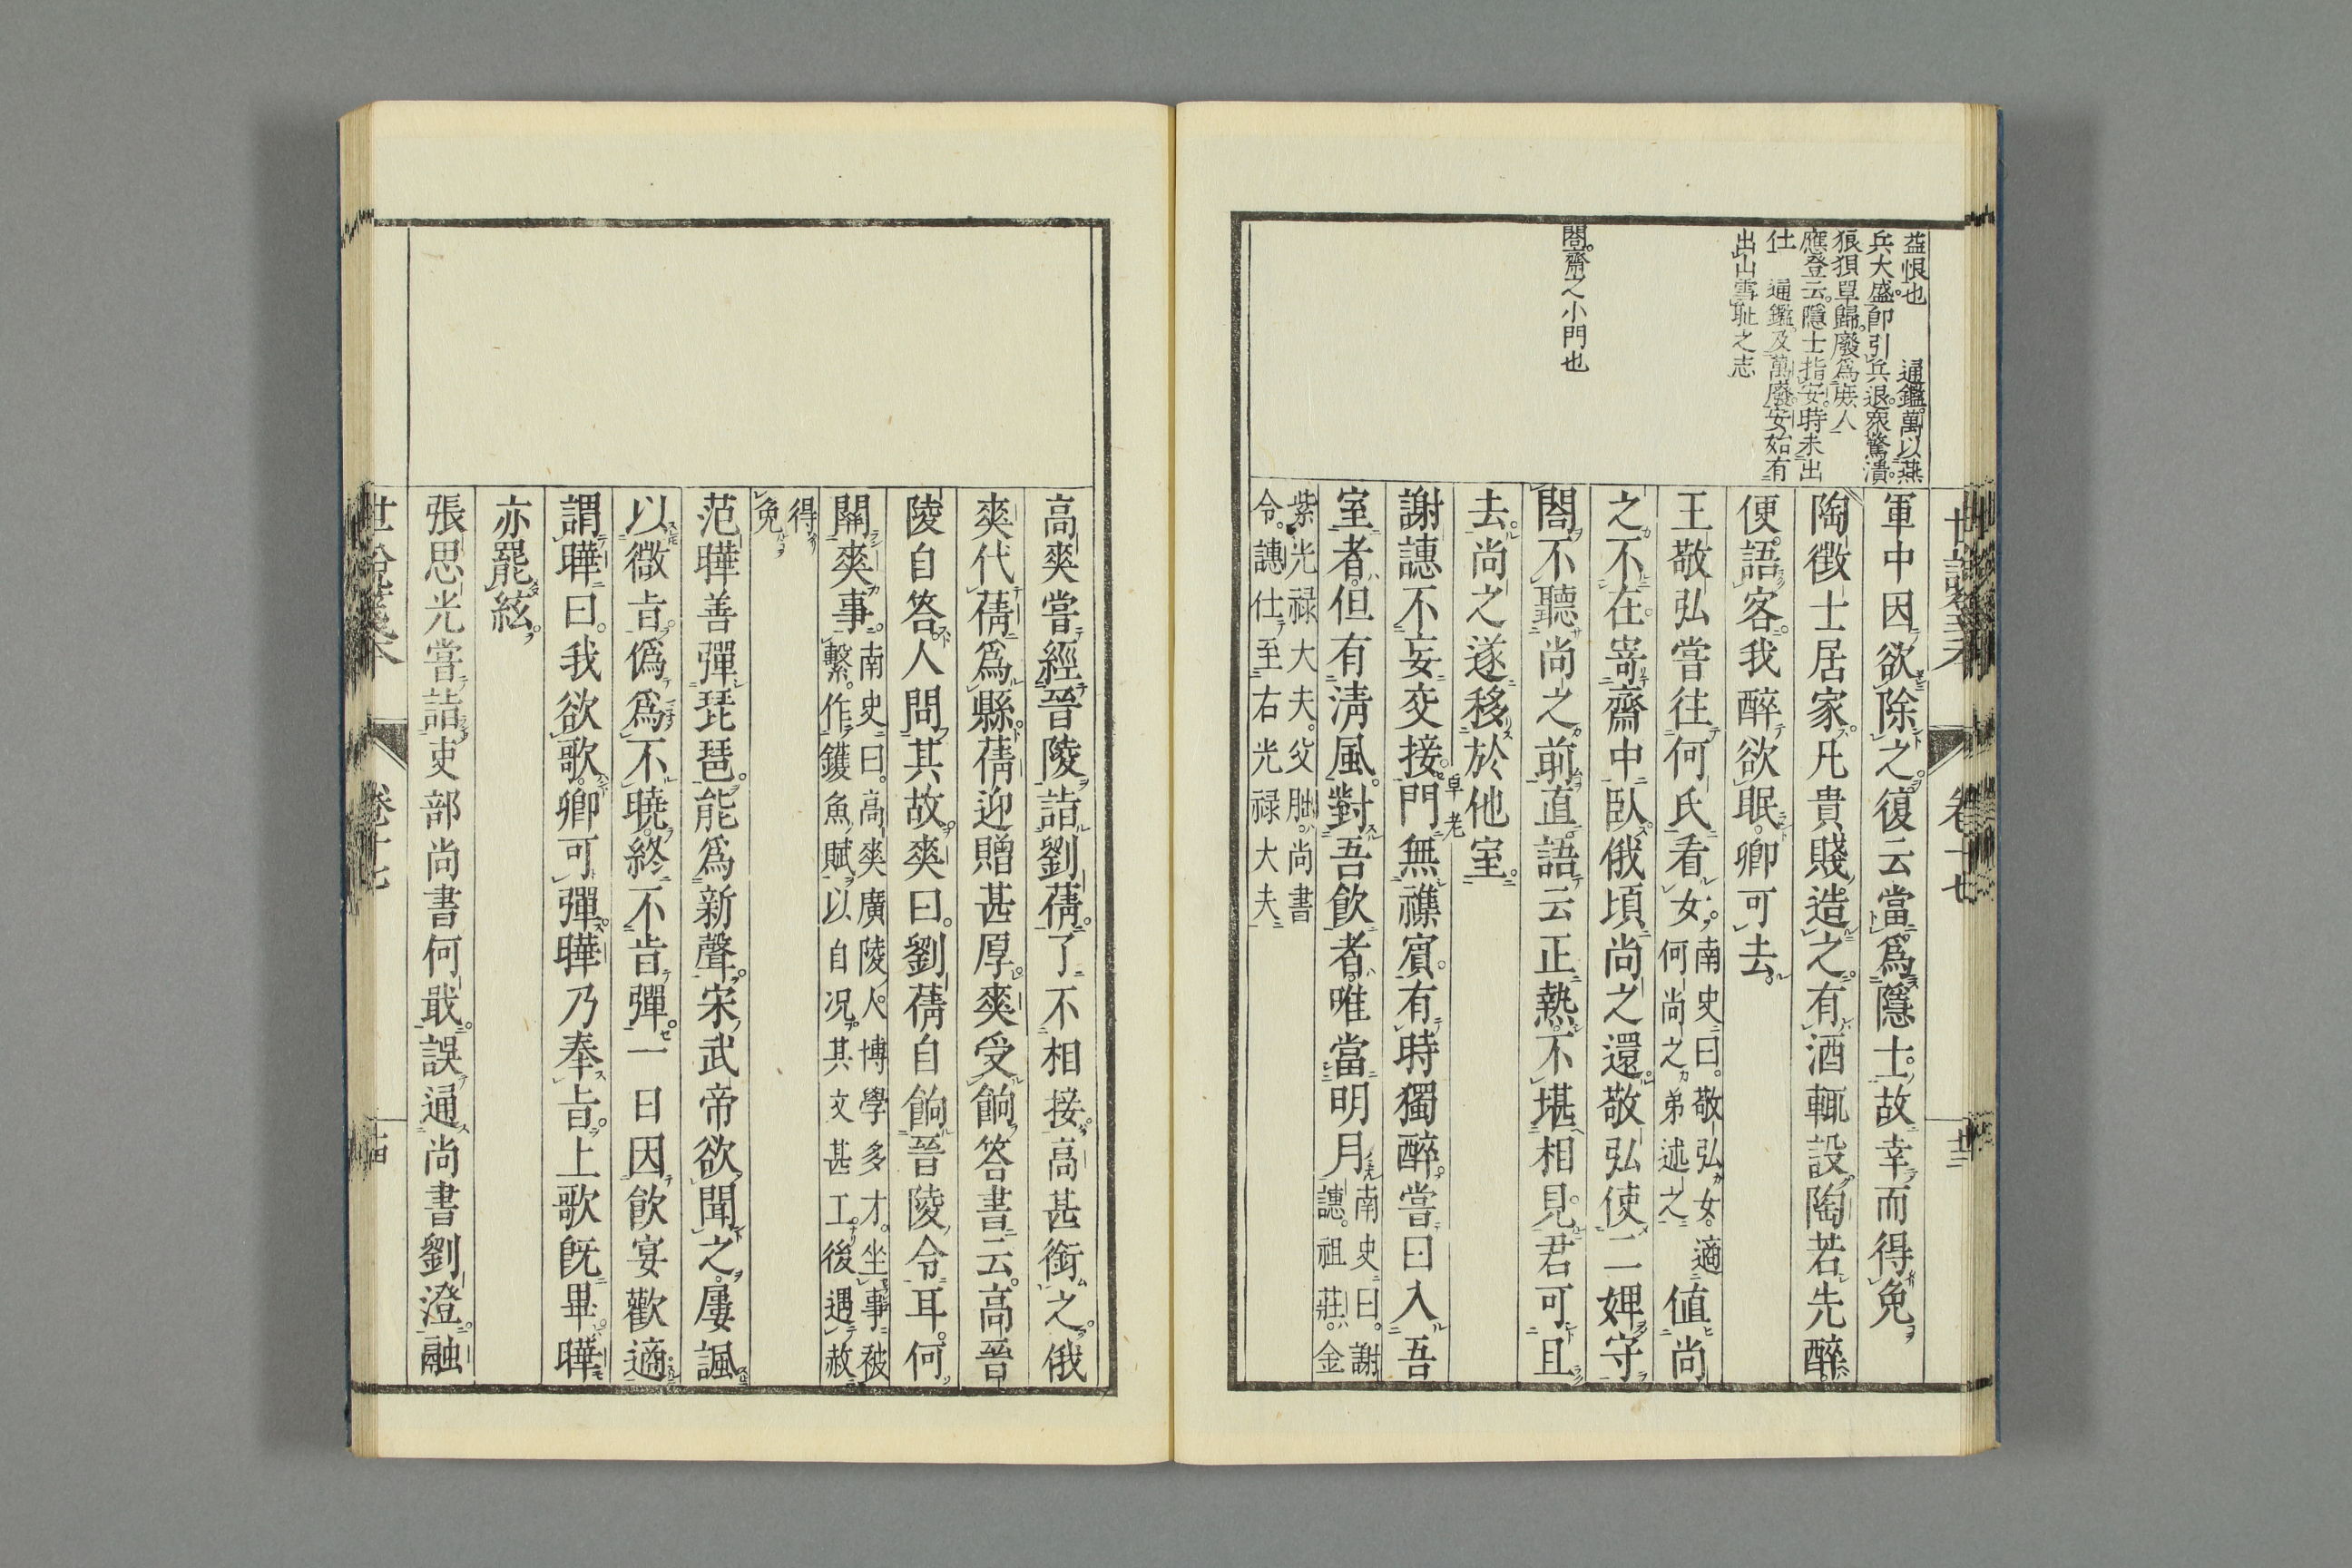 益恨也 通鑑萬以燕
兵大盛卽引兵退衆驚潰
狼狽單歸廢爲庻人
應登云隱士指安時未出
仕 通鑑及萬廢安始有
出山雪耻之志
閤齋之小門也
軍中因欲除之復云當爲隱士故幸而得免
陶徴士居家凡貴賤造之有酒輙設陶若先醉
便語客我醉欲眠卿可去
王敬弘嘗往何氏看女南史曰敬弘女適
何尚之弟述之値尚
之不在寄齋中臥俄頃尚之還敬弘使二婢守
閤不聽尚之前直語云正熱不堪相見君可且
去尚之遂移於他室
謝譓不妄交接門無襍賓有時獨醉嘗曰入吾
卓老
室者但有淸風對吾飮者唯當明月南史曰謝
譓祖莊金
紫光禄大夫父朏尚書
令譓仕至右光禄大夫
卷十七
高爽嘗經晉陵詣劉蒨了不相接高甚銜之俄
爽代蒨爲縣蒨迎贈甚厚爽受餉答書云高晉
陵自答人問其故爽曰劉蒨自餉晉陵令耳何
關爽事南史曰高爽廣陵人博學多才坐事被
繫作鑊魚賦以自況其文甚工後遇赦
得
免
范曄善彈琵琶能爲新聲宋武帝欲聞之屢諷
以微旨僞爲不曉終不肯彈一日因飮宴歡適
謂曄曰我欲歌卿可彈曄乃奉旨上歌旣畢曄
亦罷絃
張思光嘗詣吏部尚書何戢誤通尚書劉澄融
卷十七